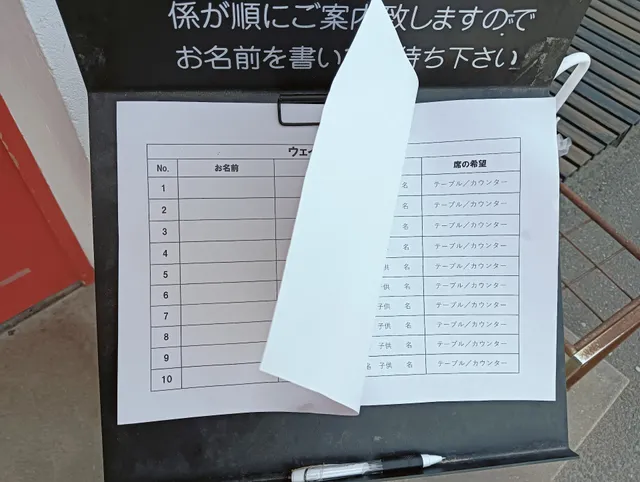 係が順にご案内致しますので
お名前を書い ち下さい
ウェ
No. お名前 席の希望
1 名 テーブル／カウンター
2 名 テーブル／カウンター
3 名 テーブル／カウンター
4 名 テーブル／カウンター
5 供 名 テーブル／カウンター
6 供 名 テーブル／カウンター
7 子供 名 テーブル／カウンター
8 子供 名 テーブル／カウンター
9 子供 名 テーブル／カウンター
10 名 子供 名 テーブル／カウンター